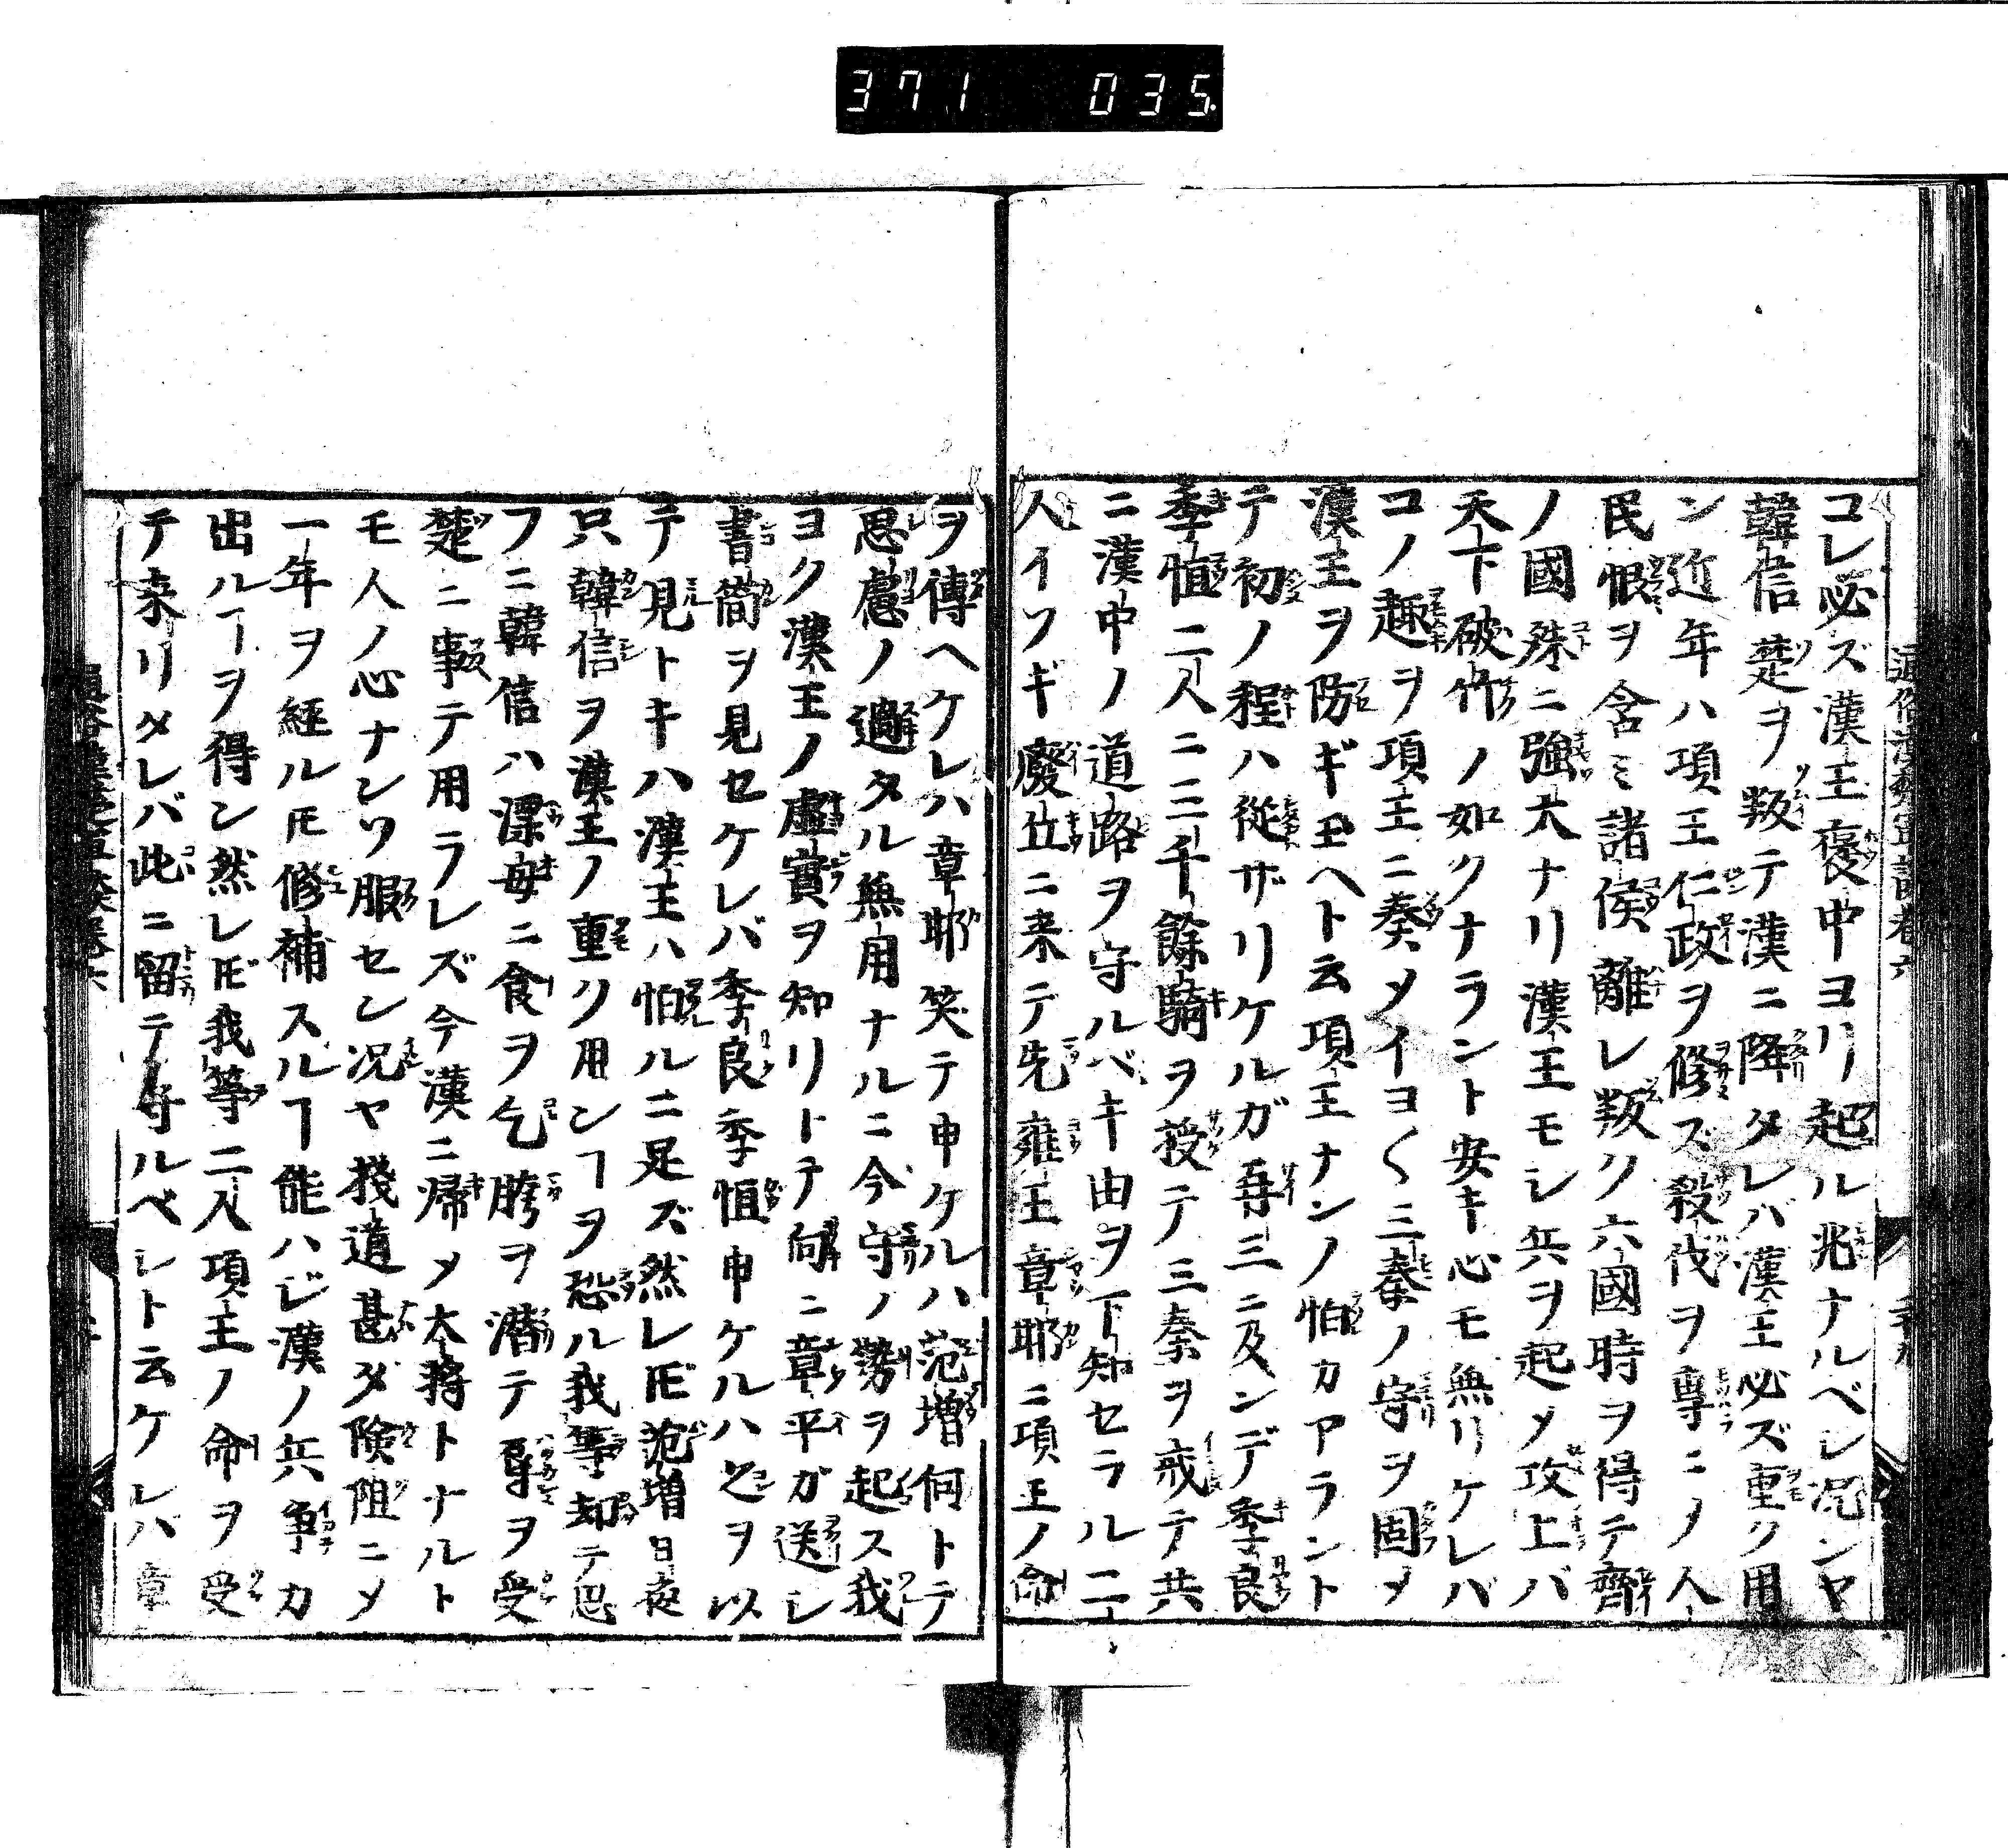 371 035
コレ必ズ漢王褒中ヨリ起ル兆ナルベシ况ンヤ
韓信楚ヲ叛テ漢ニ降タレバ漢王必ズ重ク用
ン近年ハ項王仁政ヲ修ズ殺伐ヲ專ニメ人
民恨ヲ含ミ諸侯離レ叛ク六國時ヲ得テ齊
ノ國殊ニ強大ナリ漢王モシ兵ヲ起メ攻上バ
天下破竹ノ如クナラント安キ心モ無リケレバ
コノ趣ヲ項王ニ奏メイヨ〱三秦ノ守ヲ固メ
漢王ヲ防ギ玉ヘト云項王ナンノ怕カアラント
テ初ノ程ハ從ザリケルガ再三ニ及ンデ季良
季恒二人ニ三千餘騎ヲ授テ三秦ヲ戒テ共
ニ漢中ノ道路ヲ守ルベキ由ヲ下知セラル二
人イソギ廢丘ニ来テ先雍王章耶ニ項王ノ命
ヲ傳ヘケレハ章耶笑テ申ケルハ范増何トテ
思慮ノ過タル無用ナルニ今守ノ勢ヲ起ス我
ヨク漢王ノ虚實ヲ知リトテ向ニ章平ガ送シ
書簡ヲ見セケレバ季良季恒申ケルハ是ヲ以
テ見トキハ漢王ハ怕ルニ足ズ然レ𪜈范増日夜
只韓信ヲ漢王ノ重ク用ンヿヲ恐ル我等却テ思
フニ韓信ハ漂母ニ食ヲ乞胯ヲ潜テ辱ヲ受
楚ニ事テ用ラレズ今漢ニ帰メ大將トナルト
モ人ノ心ナンソ服セン况ヤ棧道甚ダ険阻ニメ
一年ヲ經ル𪜈修補スルヿ能ハじ漢ノ兵爭カ
出ルヿヲ得ン然レ𪜈我等二人項王ノ命ヲ受
テ来リタレバ此ニ留テ守ルベシト云ケレハ章